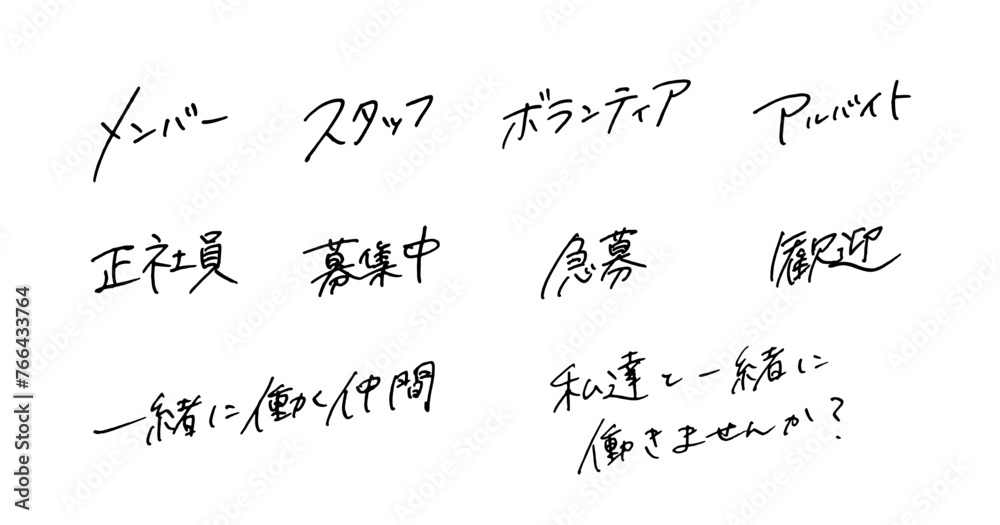 メンバー スタッフ ボランティア アルバイト
正社員 募集中 急募 歓迎
一緒に働く仲間 私達と一緒に
働きませんか?
Adobe Stock | #766433764